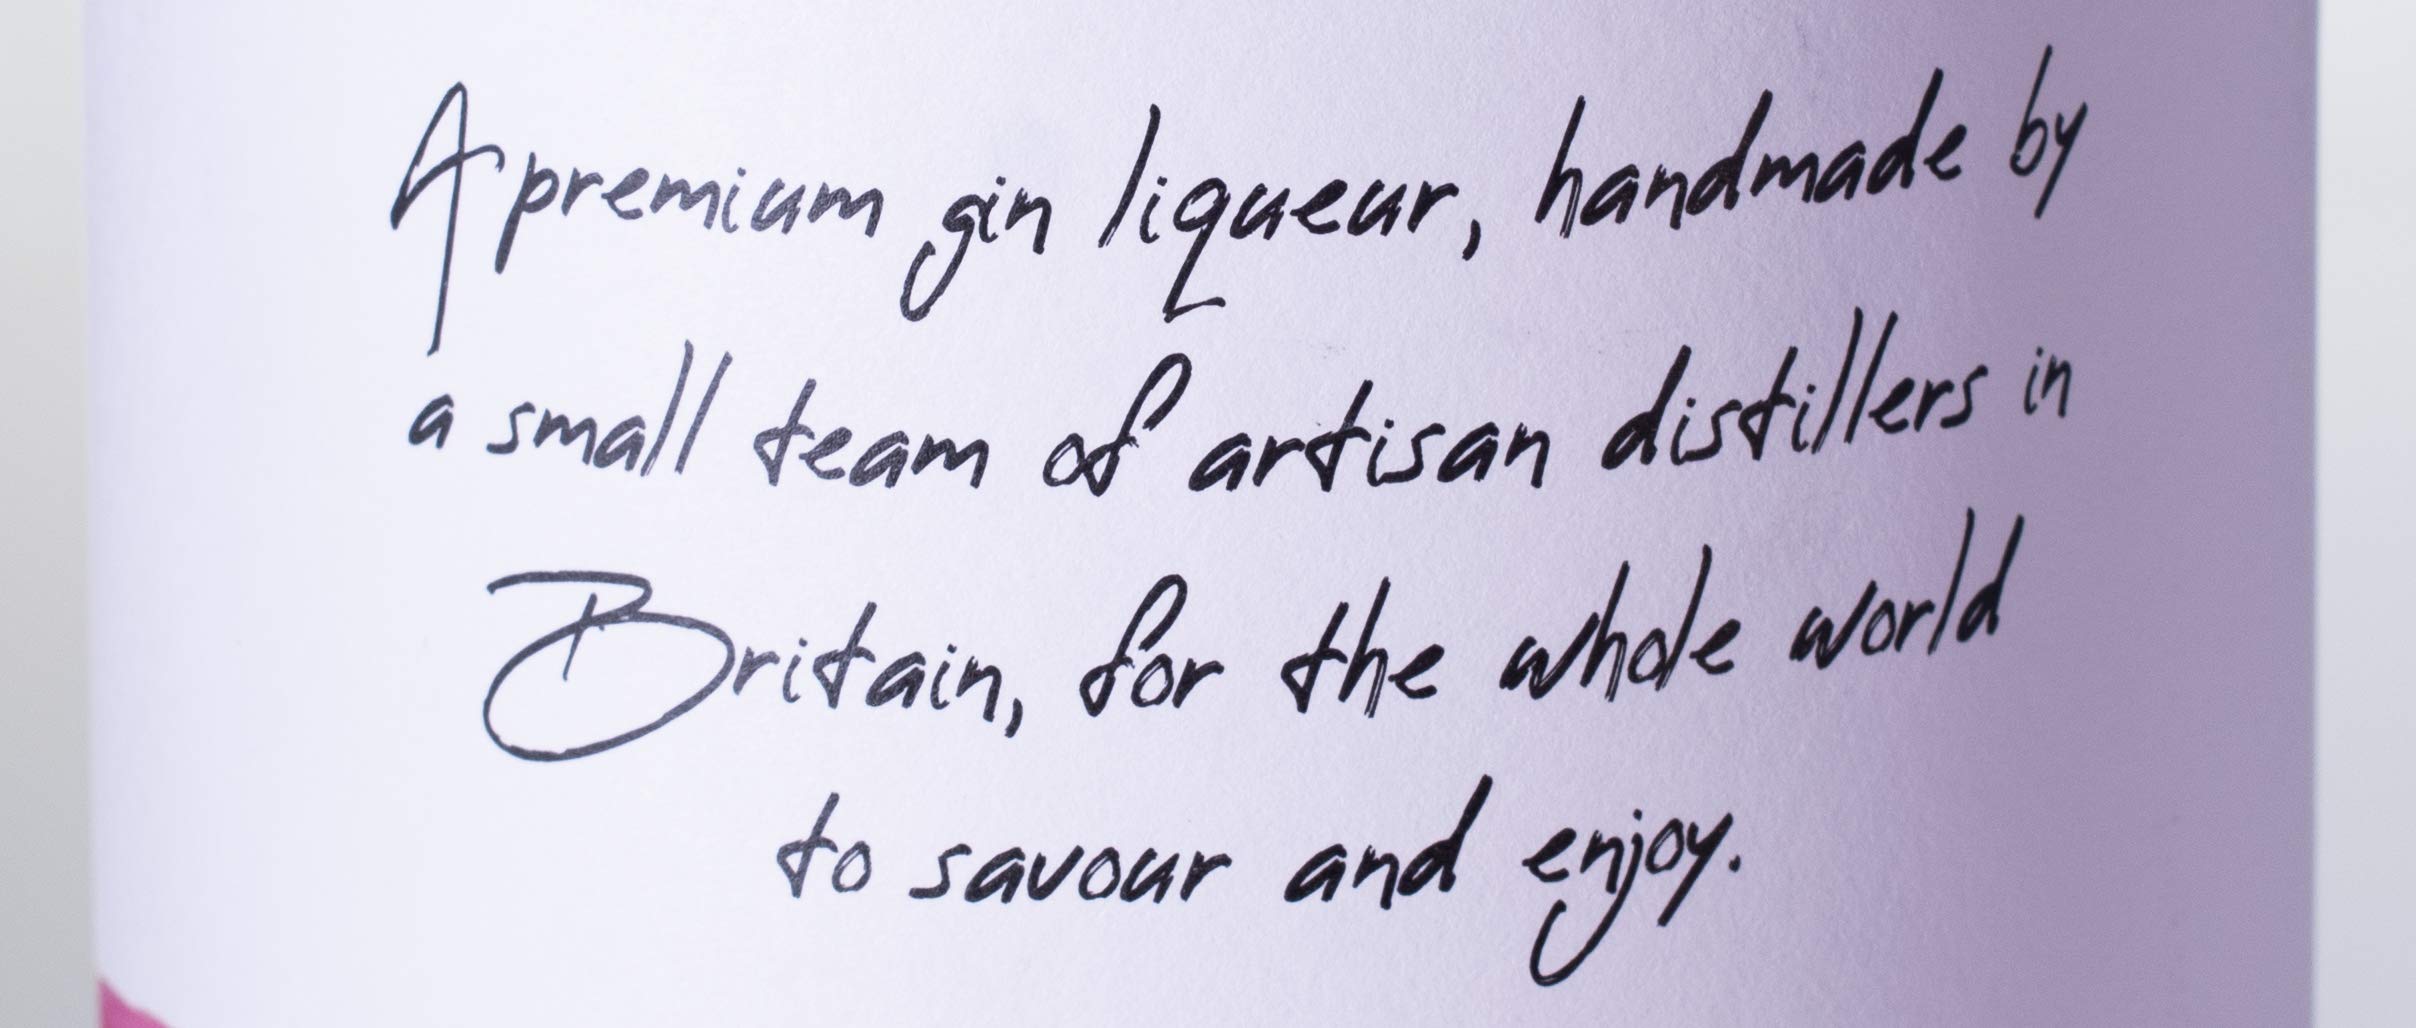 A premium gin liqueur, handmade by
a small team of artisan distillers in
Britain, for the whole world
to savour and enjoy.